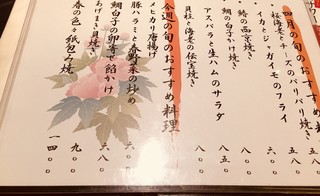 四月の旬のおすすめ
桜海老とチーズのパリパリ焼き
イカとジャガイモのフライ 六〇〇
鰆の西京焼き 八五〇
鯛の子かけ焼き 八〇〇
アスパラと生ハムのサラダ 八五〇
貝柱と海老の伝宝焼き 八〇〇
今週の旬のおすすめ料理
メヒカリ唐揚げ
豚ハラミと春野菜の炒め 八五〇
鯛白子の卵寄せ餡かけ 六八〇
あげまき貝焼き 九〇〇
春の色々紙包み焼 一四〇〇